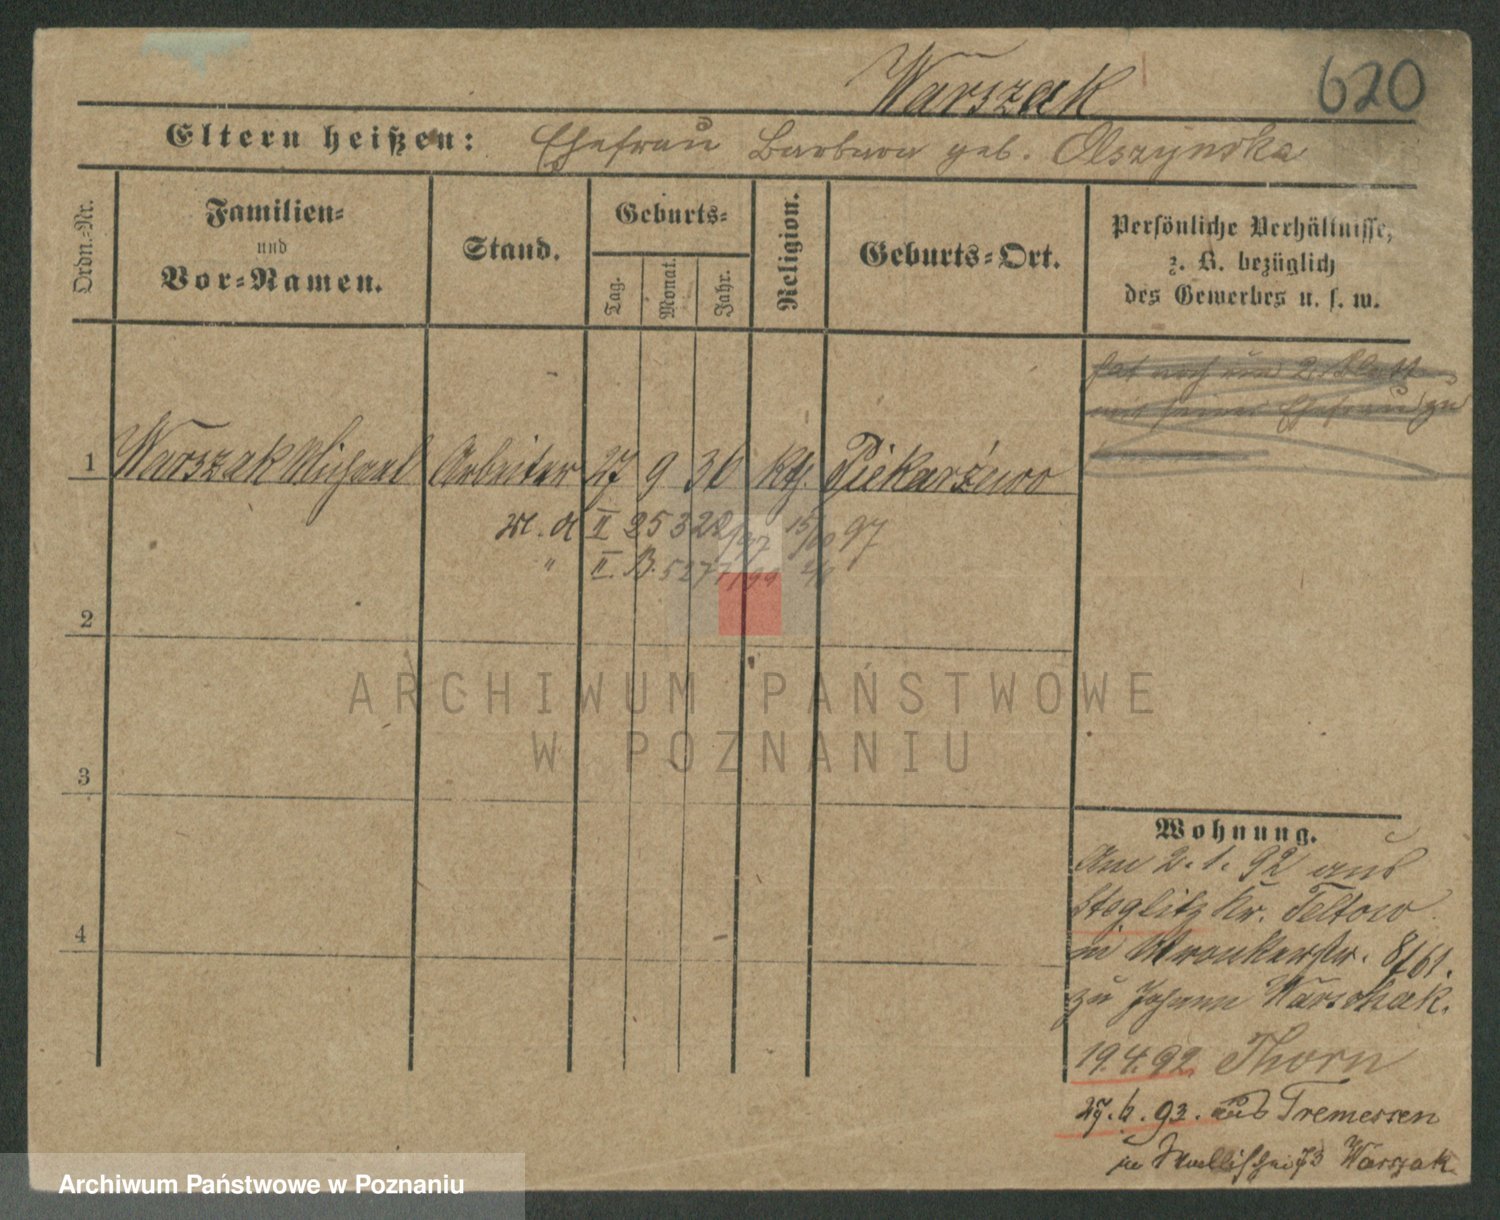 Warszak 620
Eltern heißen: Ehefrau Barbara geb. Olszynska
Ordn.-Nr.
Familien-
und
Vor-Namen.
Stand.
Geburts-
Tag.
Monat.
Jahr.
Religion.
Geburts-Ort.
Persönliche Verhältnisse,
z. B. bezüglich
des Gewerbes u. s. w.
hat noch ein 2. Blatt
mit seiner Ehefrau zu
1 Warszak Michael Arbeiter 27 9 36 kth. Piekarzewo
II 97
" II. B.
2
ARCHIWUM PAŃSTWOWE
W POZNANIU
3
4
Wohnung.
Am 2.1.92 aus
Steglitz Kr. Teltow
in Wronkerstr. 8/61.
zu Johann Warschak.
19.4.92 Thorn
27.6.93. aus Tremessen
Warszak
Archiwum Państwowe w Poznaniu